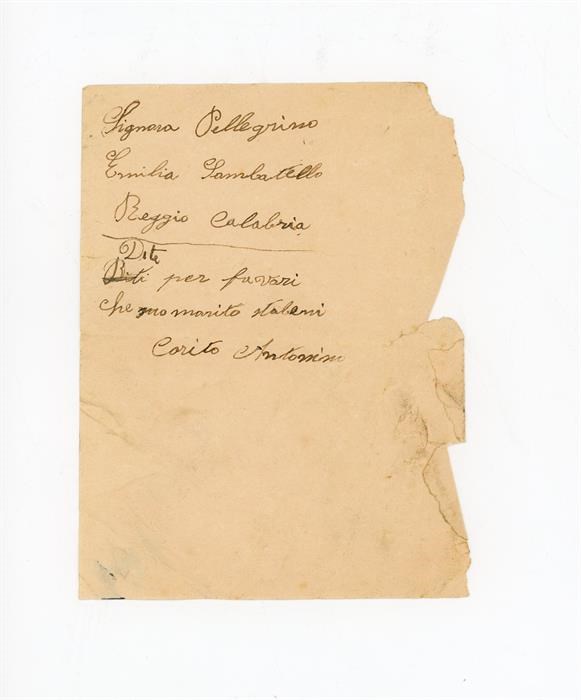 Signora Pellegrino
Emilia Sambatello
Reggio Calabria
Dite
Biti per favori
che suo marito stabeni
Corito Antonino